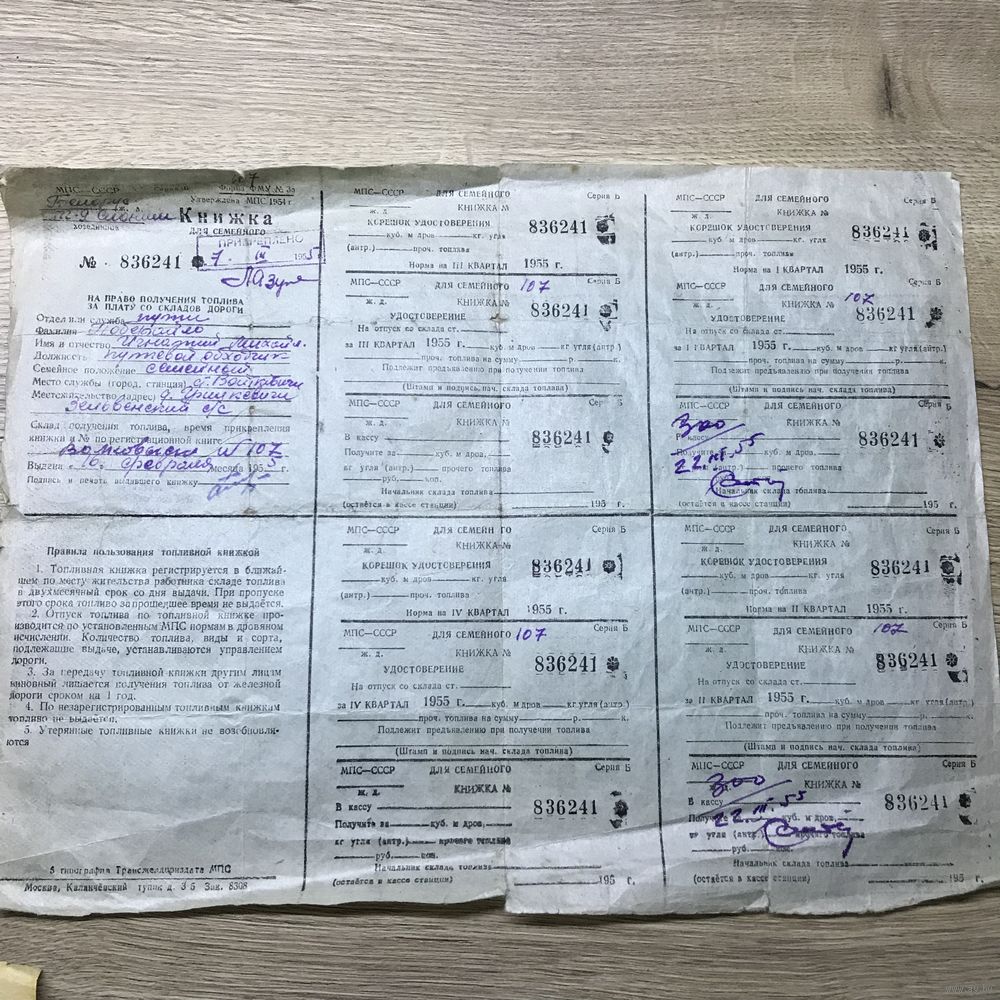 МПС—СССР
Форма ФМУ № 3а
Утверждена МПС 1954 г.
Книжка
ДЛЯ СЕМЕЙНОГО
ПРИКРЕПЛЕНО
№ 836241
7. 1955
НА ПРАВО ПОЛУЧЕНИЯ ТОПЛИВА
ЗА ПЛАТУ СО СКЛАДОВ ДОРОГИ
Отдел или служба пути
Фамилия
Имя и отчество Игнатий Михайл.
Должность путевой обходчик
Семейное положение семейный
Место службы (город, станция)
Местожительство (адрес) д.
Зельвенский с/с
Склад получения топлива, время прикрепления
книжки и № по регистрационной книге
№ 107
Выдана „16" февраля месяца 1955 г.
Подпись и печать выдавшего книжку
Правила пользования топливной книжкой
1. Топливная книжка регистрируется в ближай-
шем по месту жительства работника складе топлива
в двухмесячный срок со дня выдачи. При пропуске
этого срока топливо за прошедшее время не выдаётся.
2. Отпуск топлива по топливной книжке про-
изводится по установленным МПС нормам в дровяном
исчислении. Количество топлива, виды и сорта,
подлежащие выдаче, устанавливаются управлением
дороги.
3. За передачу топливной книжки другим лицам
виновный лишается получения топлива от железной
дороги сроком на 1 год.
4. По незарегистрированным топливным книжкам
топливо не выдаётся.
5. Утерянные топливные книжки не возобновля-
ются
5 типография Трансжелдориздата МПС
Москва, Каланчёвский тупик д. 3/5 Зак. 8308
МПС—СССР ДЛЯ СЕМЕЙНОГО Серия Б
ж. д. КНИЖКА №
КОРЕШОК УДОСТОВЕРЕНИЯ 836241
куб. м дров кг. угля
(антр.) проч. топлива
Норма на III КВАРТАЛ 1955 г.
МПС—СССР ДЛЯ СЕМЕЙНОГО 107 Серия Б
ж. д. КНИЖКА №
УДОСТОВЕРЕНИЕ 836241
На отпуск со склада ст.
за III КВАРТАЛ 1955 г. куб. м дров кг угля (антр.)
проч. топлива на сумму р. к.
Подлежит предъявлению при получении топлива
(Штамп и подпись нач. склада топлива)
МПС—СССР ДЛЯ СЕМЕЙНОГО Серия Б
ж. д. КНИЖКА №
В кассу 836241
Получите за куб. м дров,
кг угля (антр.) прочего топлива
руб. коп.
Начальник склада топлива
(остаётся в кассе станции) 195 г.
МПС—СССР ДЛЯ СЕМЕЙНОГО Серия Б
ж. д. КНИЖКА №
КОРЕШОК УДОСТОВЕРЕНИЯ 836241
куб. м дров кг. угля
(антр.) проч. топлива
Норма на I КВАРТАЛ 1955 г.
МПС—СССР ДЛЯ СЕМЕЙНОГО Серия Б
ж. д. КНИЖКА № 107
УДОСТОВЕРЕНИЕ 836241
На отпуск со склада ст.
за I КВАРТАЛ 1955 г. куб. м дров кг угля (антр.)
проч. топлива на сумму р. к.
Подлежит предъявлению при получении топлива
(Штамп и подпись нач. склада топлива)
МПС—СССР ДЛЯ СЕМЕЙНОГО Серия Б
КНИЖКА №
В кассу 836241
Получите за куб. м дров,
22 III. 55
(антр.) прочего топлива
руб. коп.
Начальник склада топлива
(остаётся в кассе станции) 195 г.
МПС—СССР ДЛЯ СЕМЕЙНОГО Серия Б
ж. д. КНИЖКА №
КОРЕШОК УДОСТОВЕРЕНИЯ 836241
куб. м дров кг. угля
(антр.) проч. топлива
Норма на IV КВАРТАЛ 1955 г.
МПС—СССР ДЛЯ СЕМЕЙНОГО 107 Серия Б
ж. д. КНИЖКА №
УДОСТОВЕРЕНИЕ 836241
На отпуск со склада ст.
за IV КВАРТАЛ 1955 г. куб. м дров кг угля (антр.)
проч. топлива на сумму р. к.
Подлежит предъявлению при получении топлива
(Штамп и подпись нач. склада топлива)
МПС—СССР ДЛЯ СЕМЕЙНОГО Серия Б
ж. д. КНИЖКА №
В кассу 836241
Получите за куб. м дров,
кг угля (антр.) прочего топлива
руб. коп.
Начальник склада топлива
(остаётся в кассе станции) 195 г.
МПС—СССР ДЛЯ СЕМЕЙНОГО Серия Б
ж. д. КНИЖКА №
КОРЕШОК УДОСТОВЕРЕНИЯ 836241
куб. м дров кг. угля
(антр.) проч. топлива
Норма на II КВАРТАЛ 1955 г.
МПС—СССР ДЛЯ СЕМЕЙНОГО 107 Серия Б
ж. д. КНИЖКА №
УДОСТОВЕРЕНИЕ 836241
На отпуск со склада ст.
за II КВАРТАЛ 1955 г. куб. м дров кг угля (антр.)
проч. топлива на сумму р. к.
Подлежит предъявлению при получении топлива
(Штамп и подпись нач. склада топлива)
МПС—СССР ДЛЯ СЕМЕЙНОГО Серия Б
КНИЖКА №
В кассу 836241
Получите 22. III. 55 куб. м дров,
кг угля (антр.) прочего топлива
руб. коп.
Начальник склада топлива
(остаётся в кассе станции) 195 г.